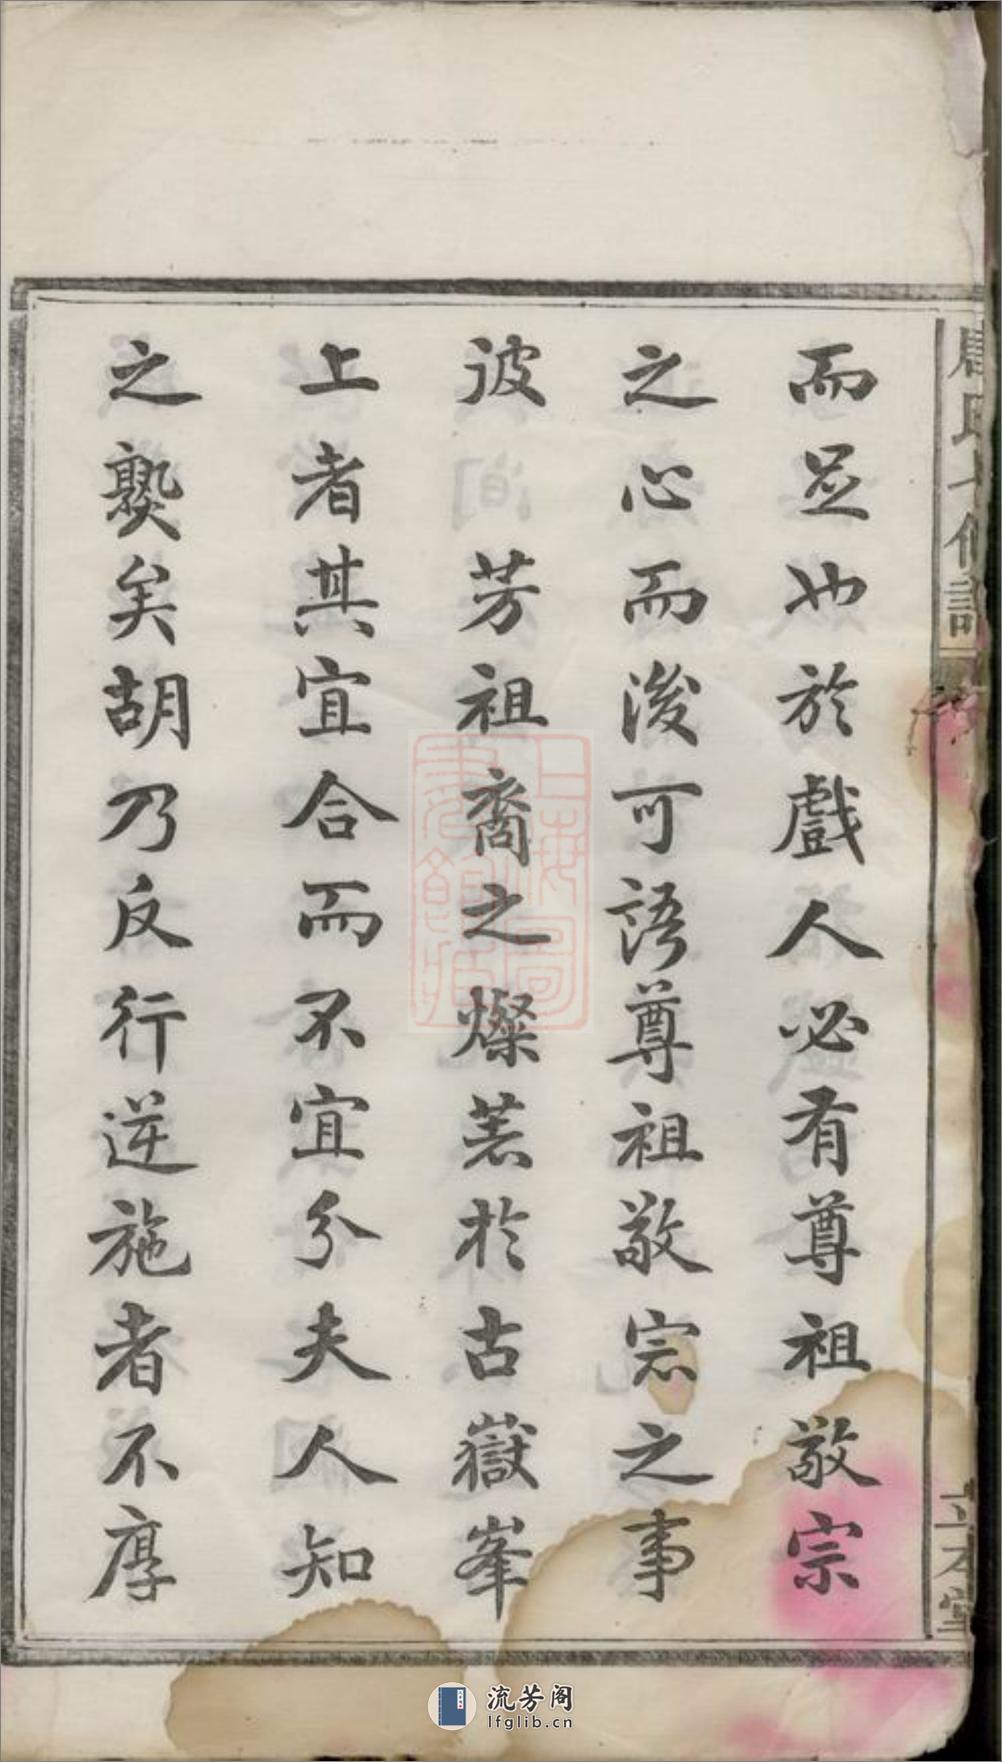 而並也於戲人必有尊祖敬宗
之心而後可語尊祖敬宗之事
彼芳祖裔之燦著於古嶽峯
上者其宜合而不宜分夫人知
之熟矣胡乃反行逆施者不厚
氏七修譜
立本堂
上海圖書館藏
流芳阁
lfglib.cn